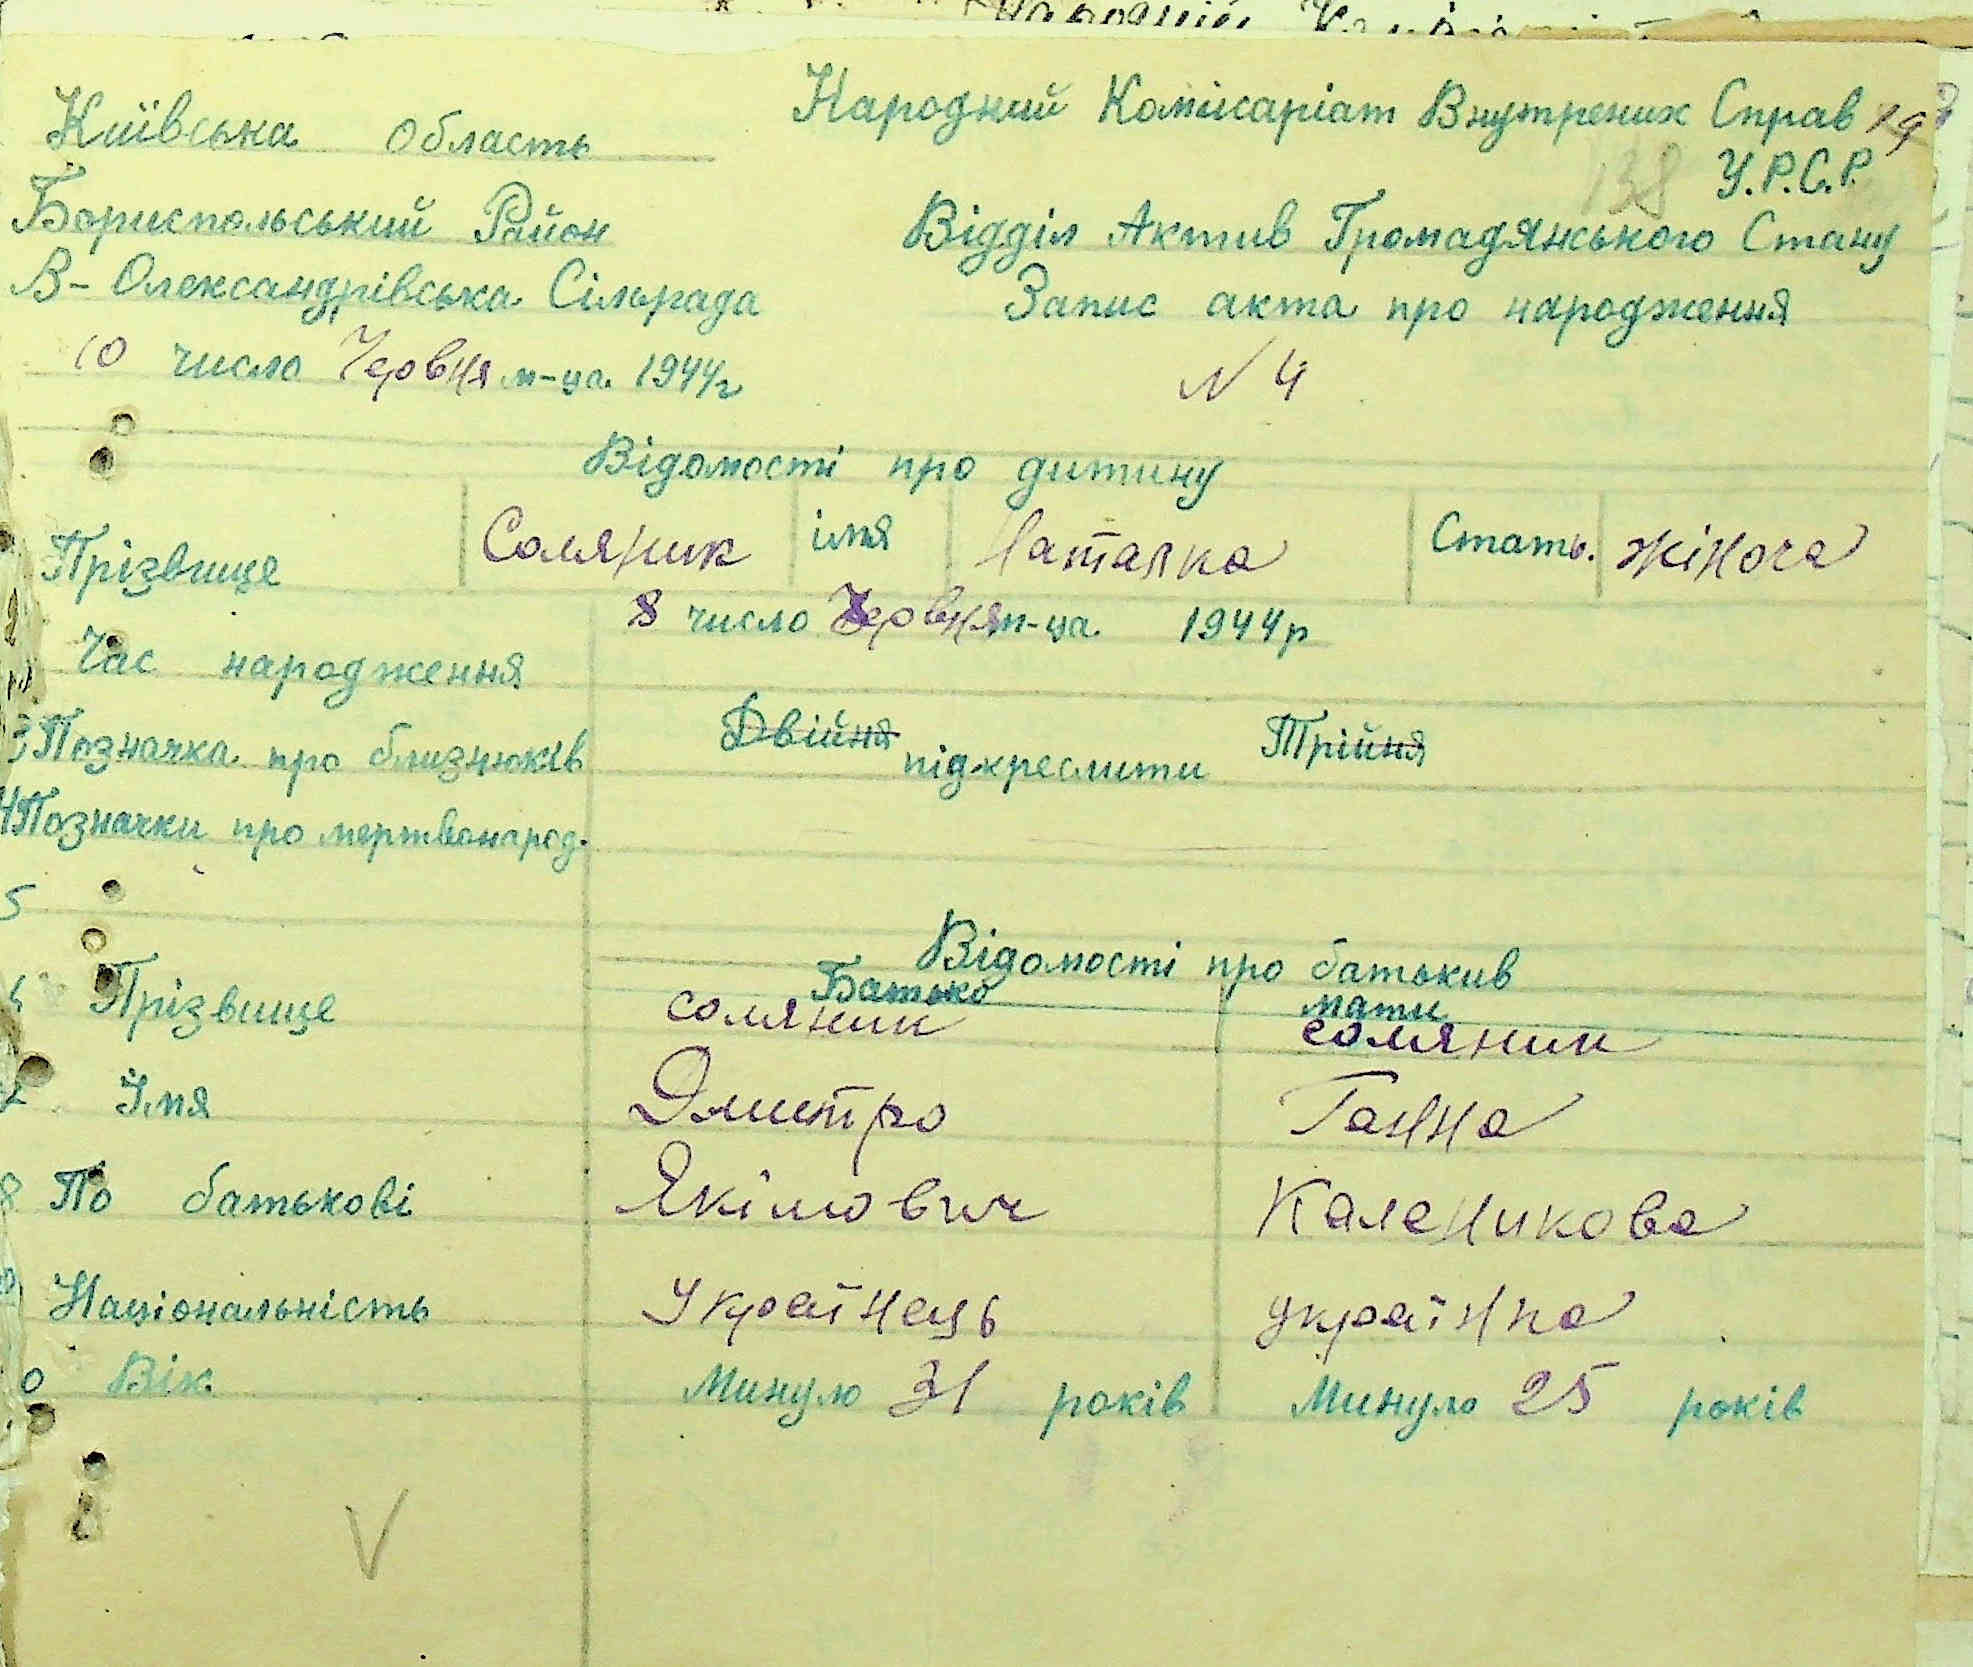 Київська область
Народний Комісаріат Внутрених Справ 19
138 У.Р.С.Р.
Бориспольський Район
Відділ Актив Громадянського Стану
В-Олександрівська Сільрада
Запис акта про народження
10 число Червня м-ца 1944г
N 4
Відомості про дитину
Прізвище Соляник імя Наталка Стать. жіноча
Час народження 8 число Червня м-ца 1944р
3 Позначка про близнюків Двійня підкреслити Трійня
4 Позначки про мертвонарод.
5
Відомості про батькив
Батько мати
Прізвище соляник соляник
Імя Дмитро Ганна
8 По батькові Якімович Каленикова
Національність Українець українка
Вік Минуло 31 років Минуло 25 років
V